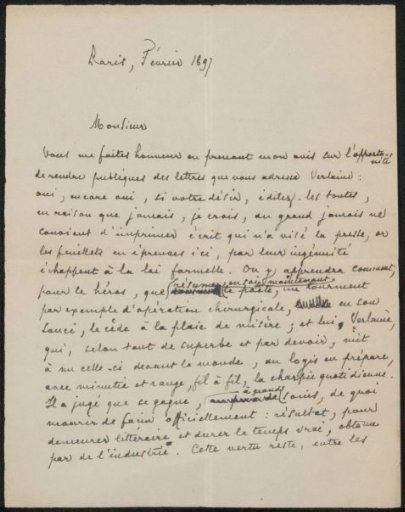 Paris, Février 1897
Monsieur
Vous me faites honneur en prenant mon avis sur l'opportu-
nité
de rendre publiques des lettres que vous adressa Verlaine :
oui, encore oui, si votre désir, éditez-les toutes,
en raison que jamais, je crois, au grand jamais ne
convient d'imprimer écrit qui n'a visé la presse, or
les feuillets en épreuves ici, par leur ingénuité
échappent à la loi formelle. On y apprendra comment,
pour le héros, que résume, on sait maintenant,
le poète, un tourment
par exemple d'opération chirurgicale, en son
souci, le cède à la plaie de misère ; et lui, Verlaine,
qui, selon tant de superbe et par devoir, mit
à nu celle-ci devant le monde, au logis en prépare,
avec minutie et range, fil à fil, la charpie quotidienne.
Il a jugé que se gagne, à grands soins, de quoi
mourir de faim officiellement : résultat, pour
demeurer littéraire et durer le temps vrai, obtenu
par de l'industrie. Cette vertu reste, entre les